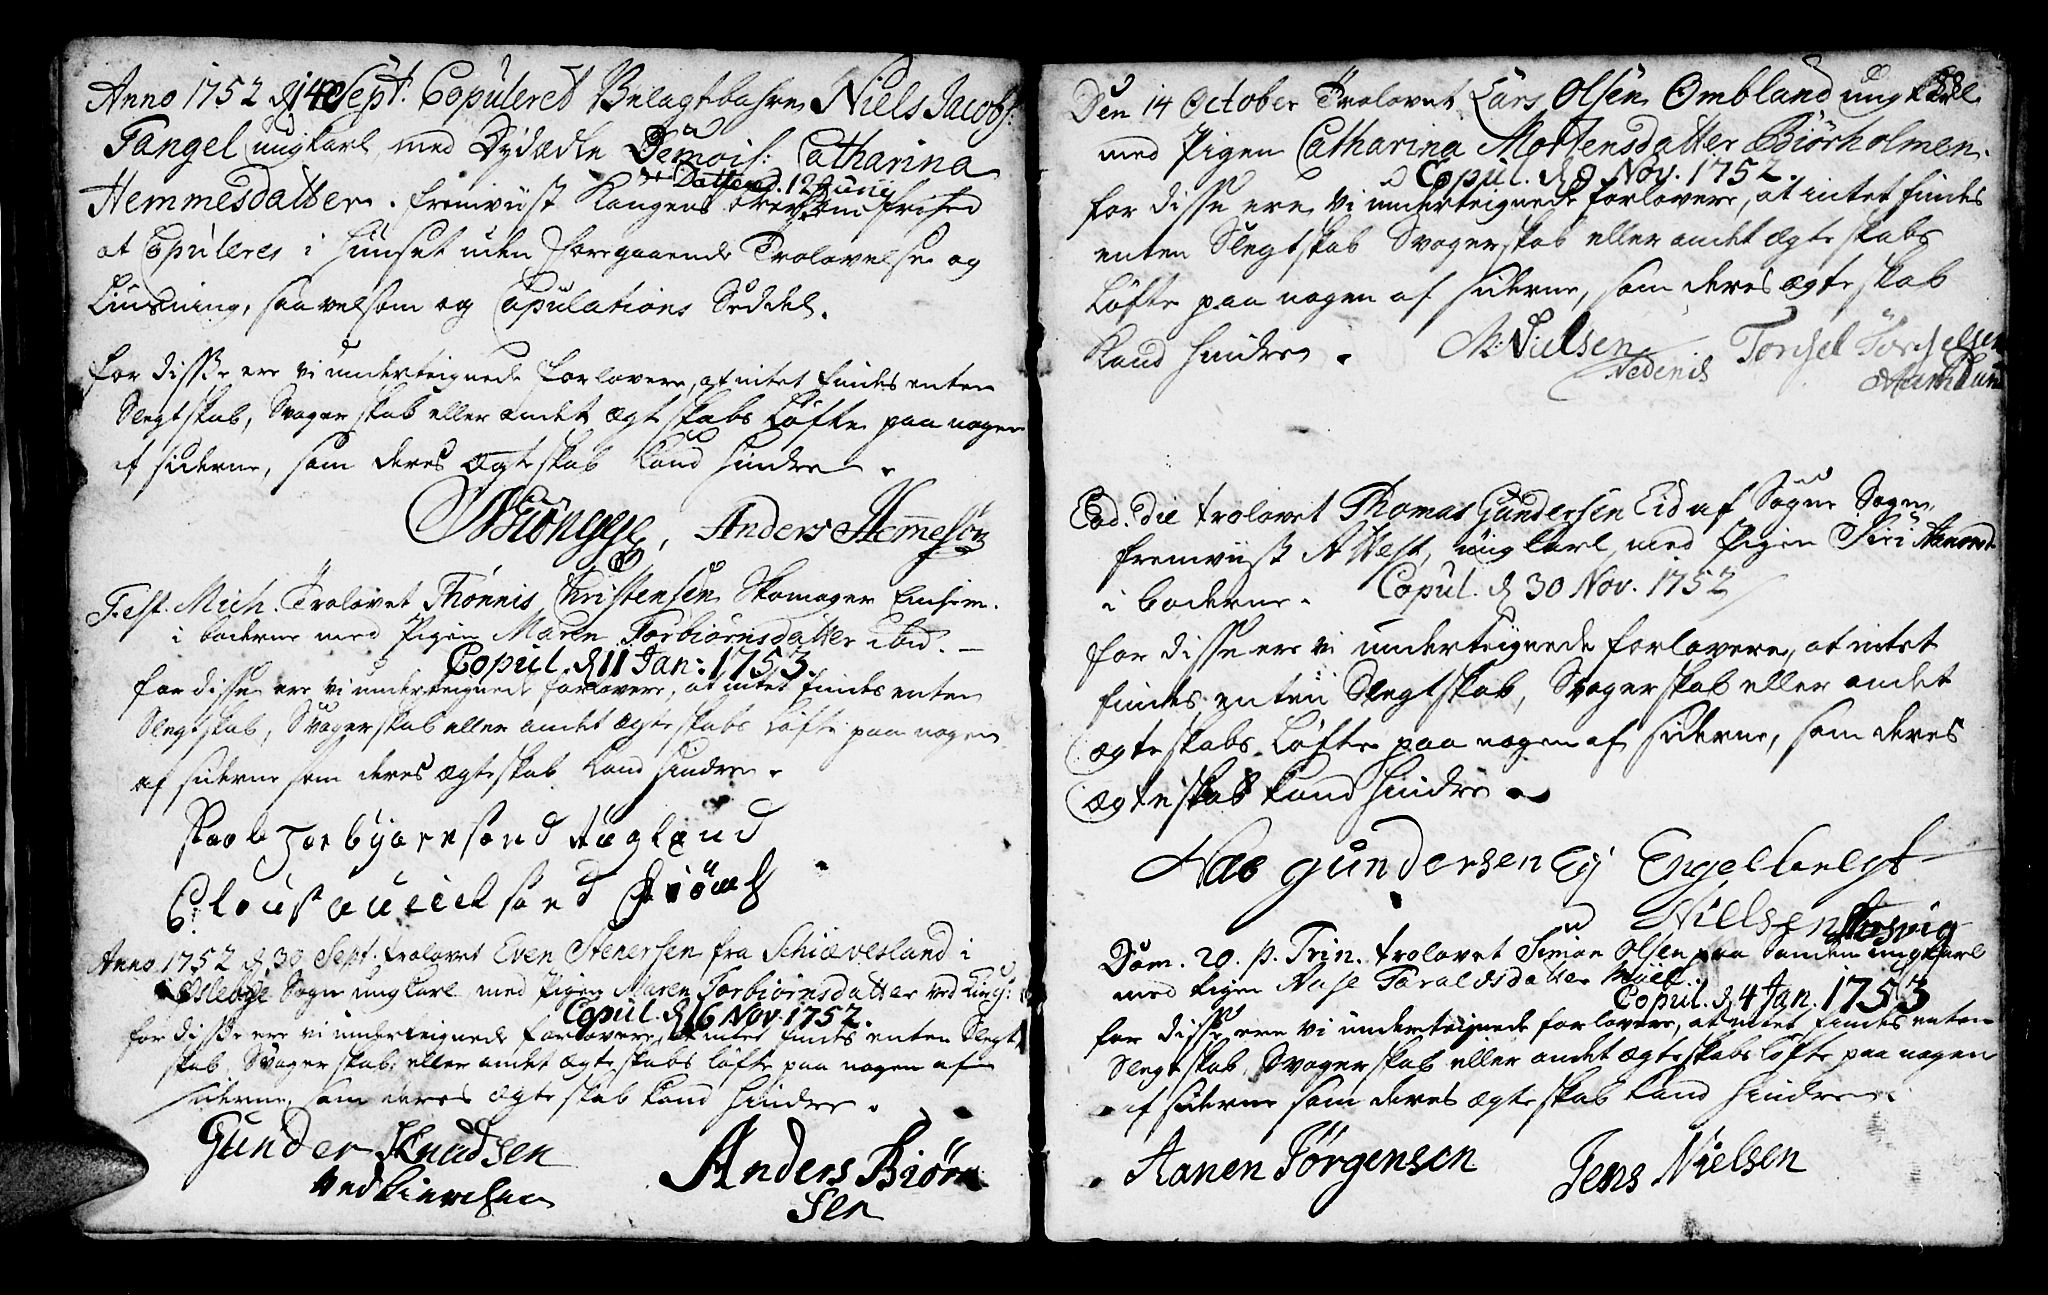 Anno 1752 d 14 Sept. Copuleret Velagtbahre Niels Jacobs:
Fangel ungkarl med Dydædle Demois: Catharina
Hemmesdatter. fremviist Kongens
Datterd. 12 Juny
at Copuleres i Huuset uden foregaaende Trolovelse og
Liusning, saavelsom og Copulations Seddel.
for disse ere vi underteignede forlovere, at intet findes enten
Slegtskab, Svogerskab eller andet ægteskabs Løfte paa nogen
af siderne, som deres ægteskab kand hindre.
Anders Hemmesøn
Fest. Mich. Trolovet Thønnis Christensen Skomager
i boderne med Pigen Maren Torbiørnsdatter ibid.
Copul. d 11 Jan: 1753.
for disse ere vi underteignede forlovere, at intet findes enten
Slegtskab, Svogerskab eller andet ægteskabs Løfte paa nogen
af siderne som deres ægteskab kand hindre.
Anno 1752 d 30 Sept. trolovet Even Stenersen fra Schiævesland i
Sogn ungkarl med Pigen Maren Torbiornsdatter ved Kirch:
Copul. d 16 Nov. 1752.
for disse ere vi underteignede forlovere, at intet findes enten Slegt
skab, Svogerskab eller andet ægteskabs løfte paa nogen af
siderne, som deres ægteskab kand hindre.
Gunder Knudsen
Anders Biørn
sen
Den 14 October Trolovet Lars Olsen Ombland ungkarl
med Pigen Catharina Mortensdatter Biørholmen.
Copul. d 9 Nov. 1752.
for disse ere vi underteignede forlovere, at intet findes
enten Slegtskab Svogerskab eller andet ægteskabs
Løfte paa nogen af siderne, som deres ægteskab
kand hindre.
M: Nielsen
Nedenis
Eod. die trolovet Thomas Gundersen Eid af Søgne Sogn,
fremviist Attest, ungkarl, med Pigen Siri
i boderne.
Copul. d 30 Nov. 1752
for disse ere vi underteignede forlovere, at intet
findes enten Slegtskab, Svogerskab eller andet
ægteskabs Løfte paa nogen af siderne, som deres
ægteskab kand hindre.
gundersen Ej
Nielsen
Dom. 20. p. Trin. trolovet Simon Olsen paa Sanden ungkarl
med Pigen Aase Taraldsdatter
Copul. d 4 Jan. 1753
for disse ere vi underteignede forlovere, at intet findes enten
Slegtskab, Svogerskab eller andet ægteskabs løfte paa nogen
af siderne som deres ægteskab kand hindre.
Aanen Jørgensen
Jens Nielsen